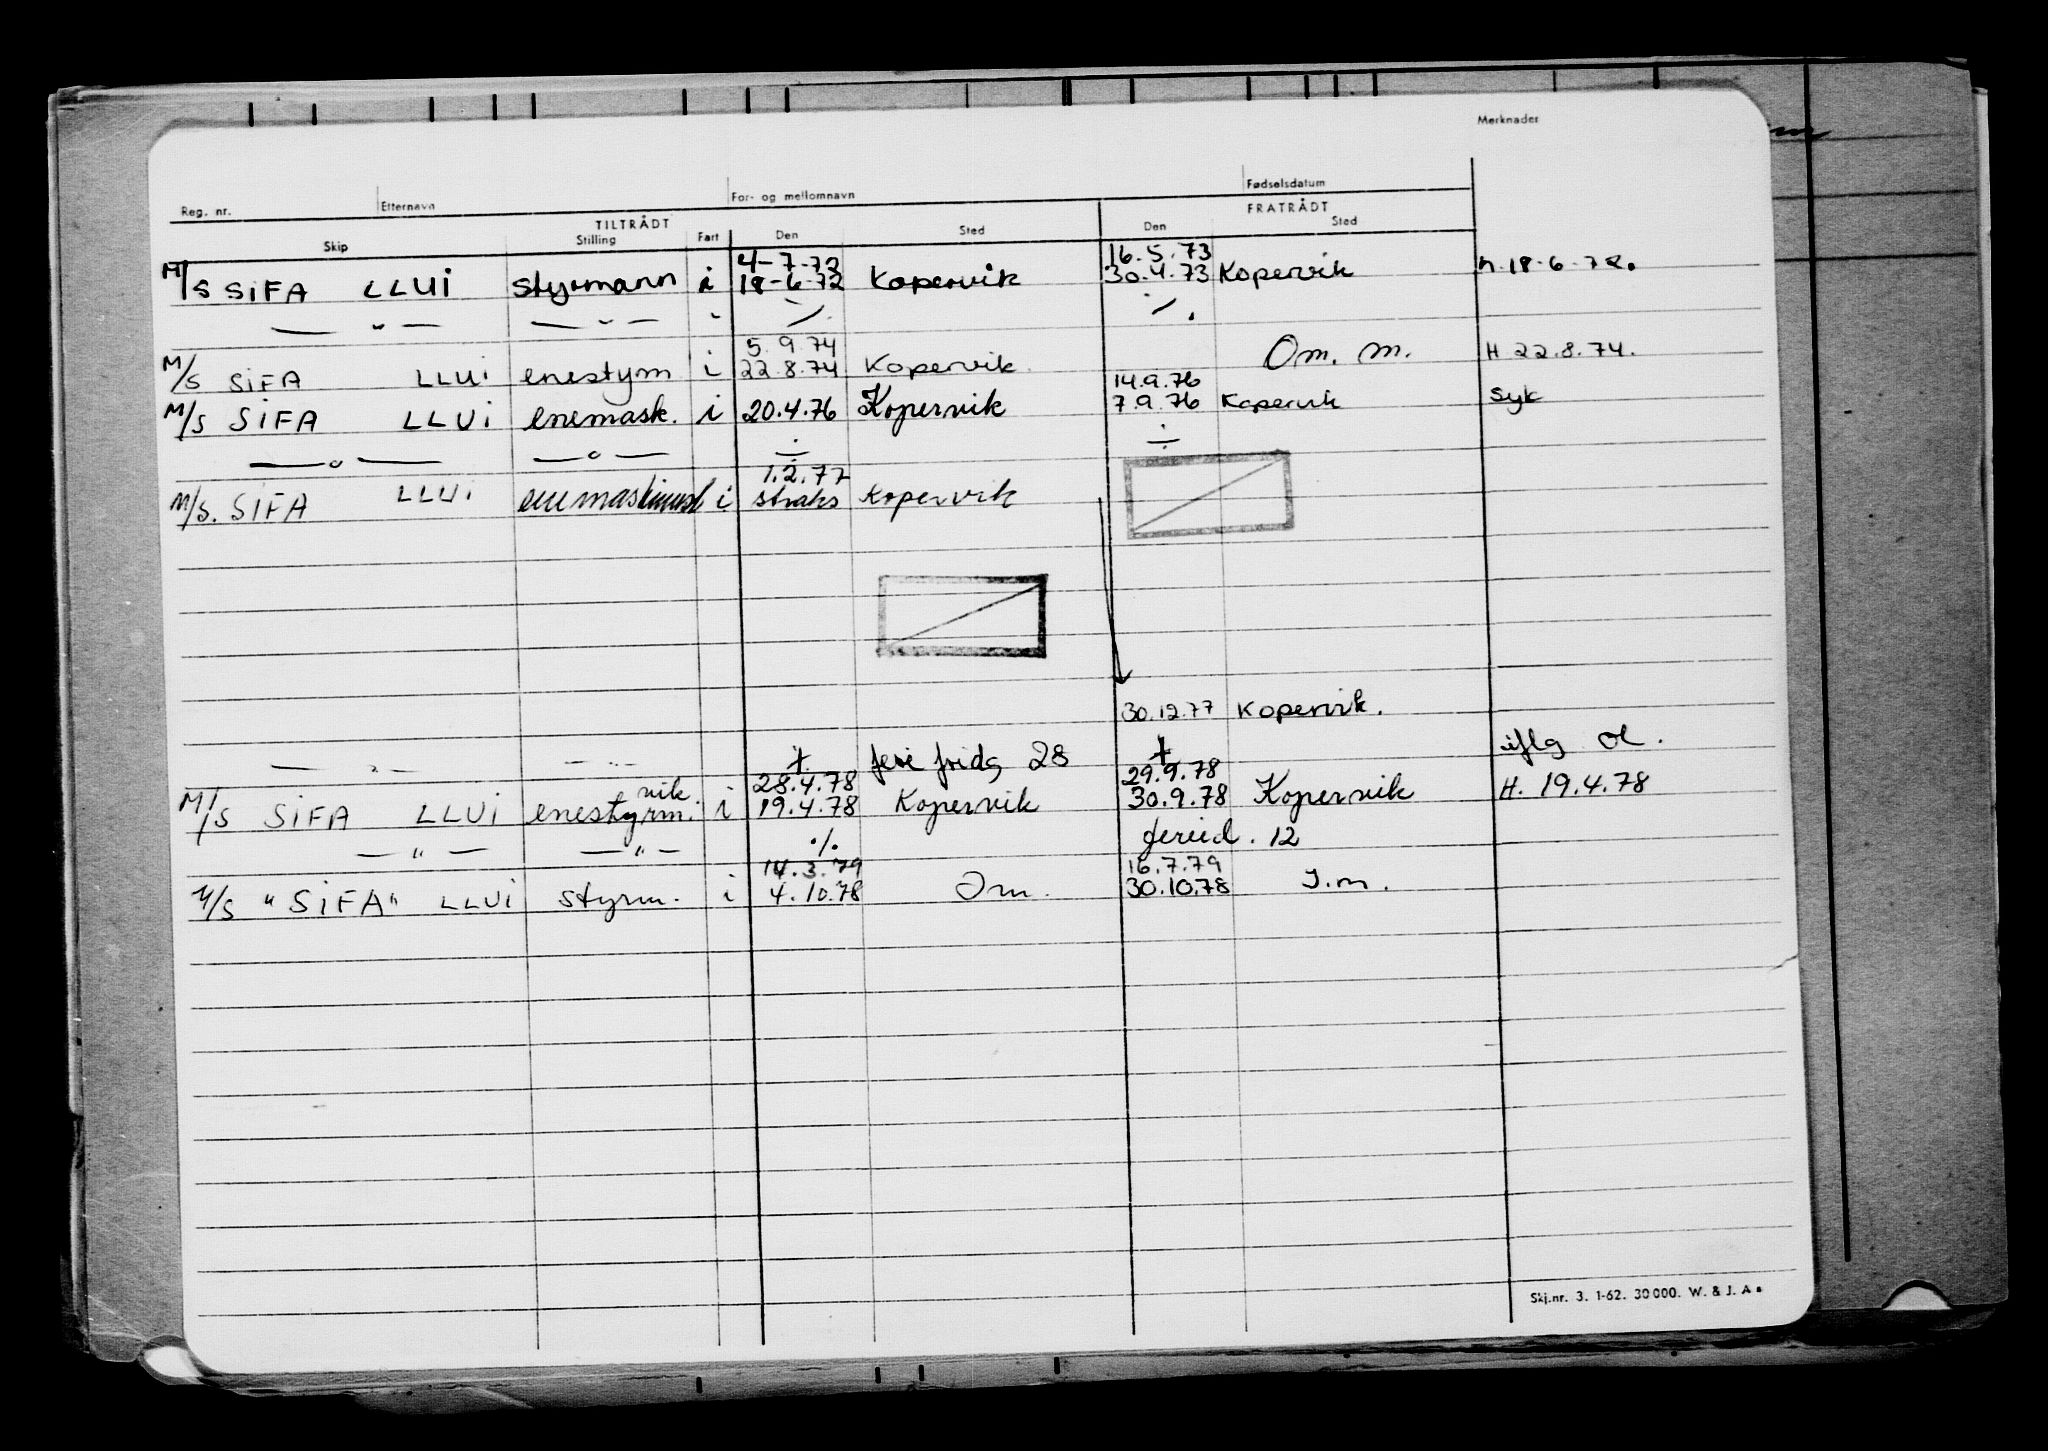 Merknader
Reg. nr. Etternavn For- og mellomnavn Fødselsdatum
TILTRÅDT FRATRÅDT
Skip Stilling Fart Den Sted Den Sted
4-7-72 16.5.73
M/S SIFA LLUI styrmann i 18-6-72 Kopervik 30.4.73 Kopervik h.18.6.72.
— " — — " — " ./. ./.
5.9.74
M/S SIFA LLUI enestyrm i 22.8.74 Kopervik Om. m. H 22.8.74.
14.9.76
M/S SIFA LLUI enemask. i 20.4.76 Kopervik 7.9.76 Kopervik Syk
— " — — " — ÷ ÷
1.2.77
M/S. SIFA LLUI enemaskinist i straks Kopervik
30.12.77 Kopervik.
— " — — " — ferie fridg 28 iflg
28.4.78 29.9.78
M/S SIFA LLUI vik. enestyrm. i 19.4.78 Kopervik 30.9.78 Kopervik H. 19.4.78
— " — — " — ./. 12
14.3.79 16.7.79
M/S "SIFA" LLUI styrm. i 4.10.78 Om. 30.10.78 I.m.
Skj.nr. 3. 1-62. 30 000. W. & J. A s